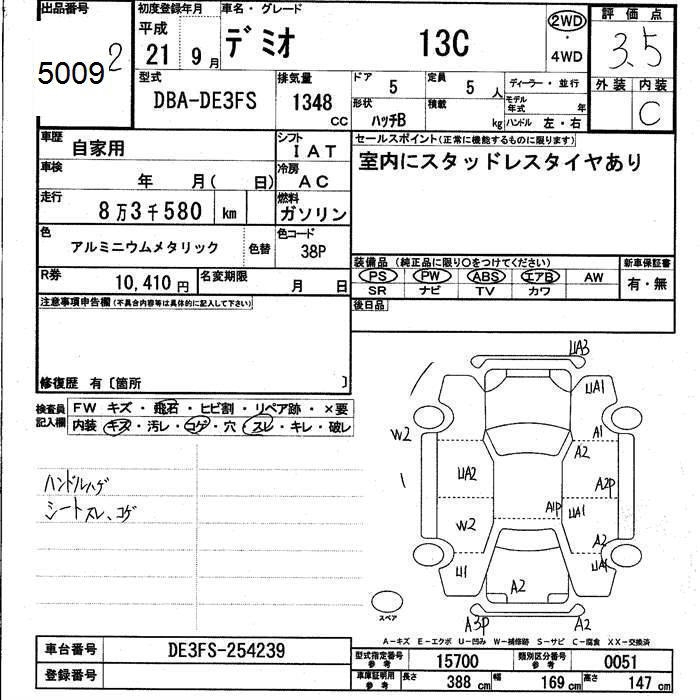 出品番号
50092
初度登録年月
平成
21 9 月
車名・グレード
デミオ 13C
2WD
・
4WD
評価点
3.5
外装 内装
C
型式
DBA-DE3FS
排気量
1348
CC
ドア
5
定員
5 人
ディーラー・並行
モデル年式 年
形状
ハッチB
積載
kg
ハンドル 左・右
車歴
自家用
シフト
IAT
セールスポイント(正常に機能するものに限ります)
室内にスタッドレスタイヤあり
車検
年 月( 日)
冷房
AC
走行
8万3千580 km
燃料
ガソリン
色
アルミニウムメタリック
色替
色コード
38P
装備品(純正品に限り○をつけてください)
PS PW ABS エアB AW
SR ナビ TV カワ
新車保証書
有・無
R券
10,410円
名変期限
月 日
後日品
注意事項申告欄(不具合内容等は具体的に記入して下さい)
修復歴 有〔箇所 〕
検査員記入欄
FW キズ・飛石・ヒビ割・リペア跡・×要
内装・キズ・汚レ・コゲ・穴・スレ・キレ・破レ
ハンドルハゲ
シートスレ、コゲ
UA3
UA1
A1
W2
A2
UA2
A2P
A1P
UA1
W2
A2
U1
UA1
A2
スペア
A3P
A2
A-キズ E-エクボ U-凹み W-補修跡 S-サビ C-腐食 XX-交換済
車台番号
DE3FS-254239
登録番号
型式指定番号
参考
15700
類別区分番号
参考
0051
車庫証明用
参考
長さ
388 cm
幅
169 cm
高さ
147 cm